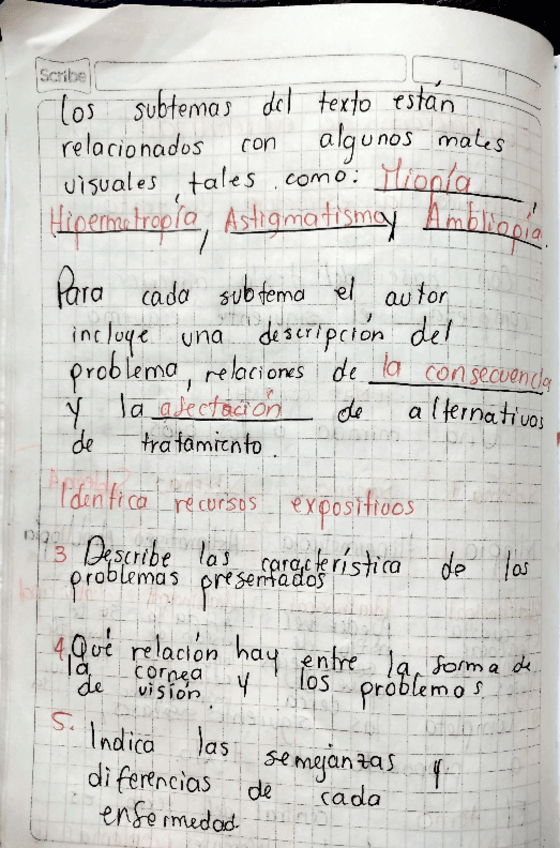 Scribe
los subtemas del texto están
relacionados con algunos males
visuales, tales como: Miopía,
Hipermetropía, Astigmatismo y Ambliopía.
Para cada subtema el autor
incluye una descripción del
problema, relaciones de la consecuencia
y la afectación de alternativas
de tratamiento.
Identica recursos expositivos
3 Describe las característica de los
problemas presentados
4. Qué relación hay entre la forma de
la cornea y los problemas
de visión.
5. Indica las semejanzas y
diferencias de cada
enfermedad.